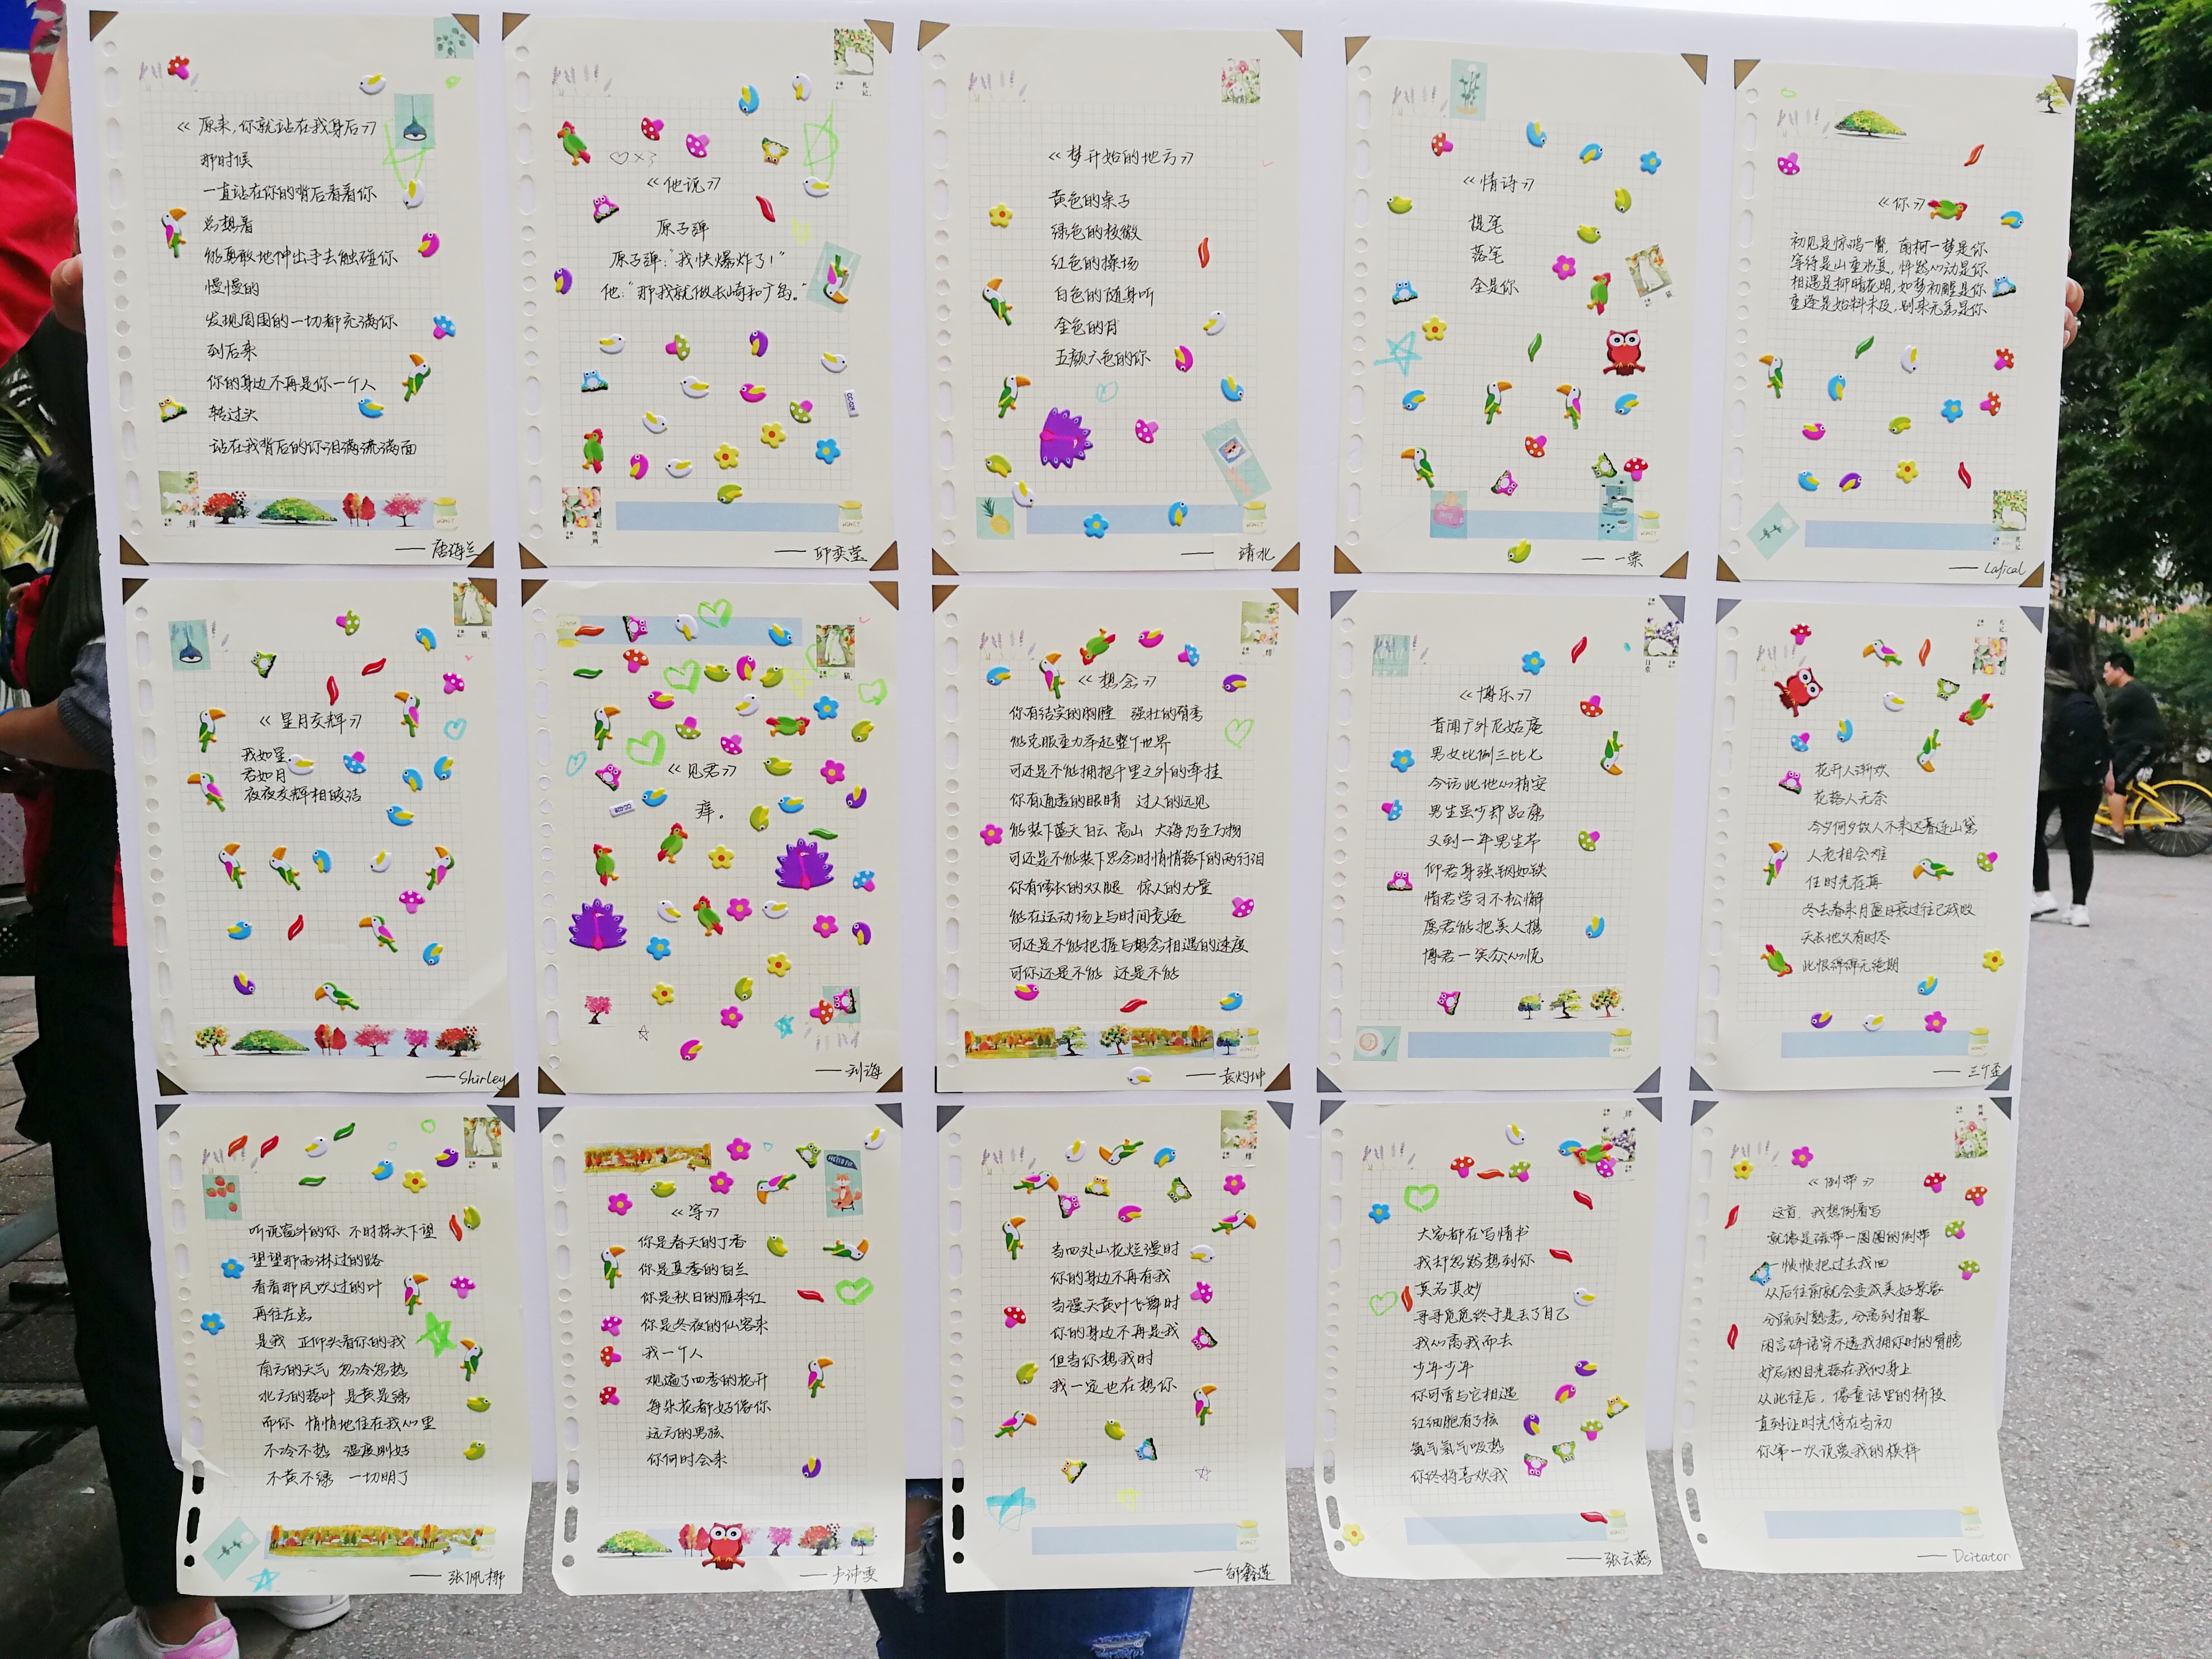 《原来,你就站在我身后》
那时候
一直站在你的背后看着你
总想着
能勇敢地伸出手去触碰你
慢慢的
发现周围的一切都充满你
到后来
你的身边不再是你一个人
转过头
站在我背后的你泪满流满面
——唐海兰
♡×3
《他说》
原子弹
原子弹:“我快爆炸了!”
他:“那我就做长崎和广岛。”
《梦开始的地方》
黄色的桌子
绿色的校徽
红色的操场
白色的随身听
金色的月
五颜六色的你
——靖北
《情诗》
提笔
落笔
全是你
——一棠
《你》
初见是惊鸿一瞥,南柯一梦是你
等待是山重水复,怦然心动是你
相遇是柳暗花明,如梦初醒是你
重逢是始料未及,别来无恙是你
——Lajical
《星月交辉》
我如星
君如月
夜夜交辉相皎洁
——Shirley
《见君》
痒。
——刘海
《想念》
你有结实的胸膛 强壮的臂弯
能克服重力举起整个世界
可还是不能拥抱千里之外的牵挂
你有通透的眼睛 过人的远见
能装下蓝天白云 高山 大海乃至万物
可还是不能装下思念时悄悄落下的两行泪
你有修长的双腿 惊人的力量
能在运动场上与时间竞逐
可还是不能把握与想念相遇的速度
可你还是不能 还是不能
——袁灼坤
《博乐》
昔闻广外尼姑庵
男女比例三比七
今访此地心稍安
男生虽少却品廉
又到一年男生节
仰君身强钢如铁
惜君学习不松懈
愿君能把美人携
博君一笑众心悦
花开人渐欢
花落人无奈
今夕何夕故人不来迟暮连山黛
人老相会难
任时光荏苒
冬去春来月盈日衰过往已残败
天长地久有时尽
此恨绵绵无绝期
——三个歪
听说窗外的你 不时探头下望
望望那雨淋过的路
看看那风吹过的叶
再往左点
是我 正仰头看你的我
南方的天气 忽冷忽热
北方的落叶 是黄是绿
而你 悄悄地住在我心里
不冷不热 温度刚好
不黄不绿 一切明了
——张佩柳
《等》
你是春天的丁香
你是夏季的白兰
你是秋日的雁来红
你是冬夜的仙客来
我一个人
观遍了四季的花开
每朵花都好像你
远方的男孩
你何时会来
——卢诗雯
当四处山花烂漫时
你的身边不再有我
当漫天黄叶飞舞时
你的身边不再是我
但当你想我时
我一定也在想你
大家都在写情书
我却忽然想到你
莫名其妙
寻寻觅觅终于是丢了自己
我心离我而去
少年少年
你可曾与它相遇
红细胞有了核
氦气氡气吸热
你终将喜欢我
——张云燕
《倒带》
这首,我想倒着写
就像是磁带一圈圈的倒带
一快快把过去找回
从后往前就会变成美好景象
分隔到熟悉,分离到相聚
闲言碎语穿不透我拥你时的臂膀
妒忌的目光落在我们身上
从此往后,像童话里的桥段
直到让时光停在当初
你第一次说爱我的模样
——Dcitator